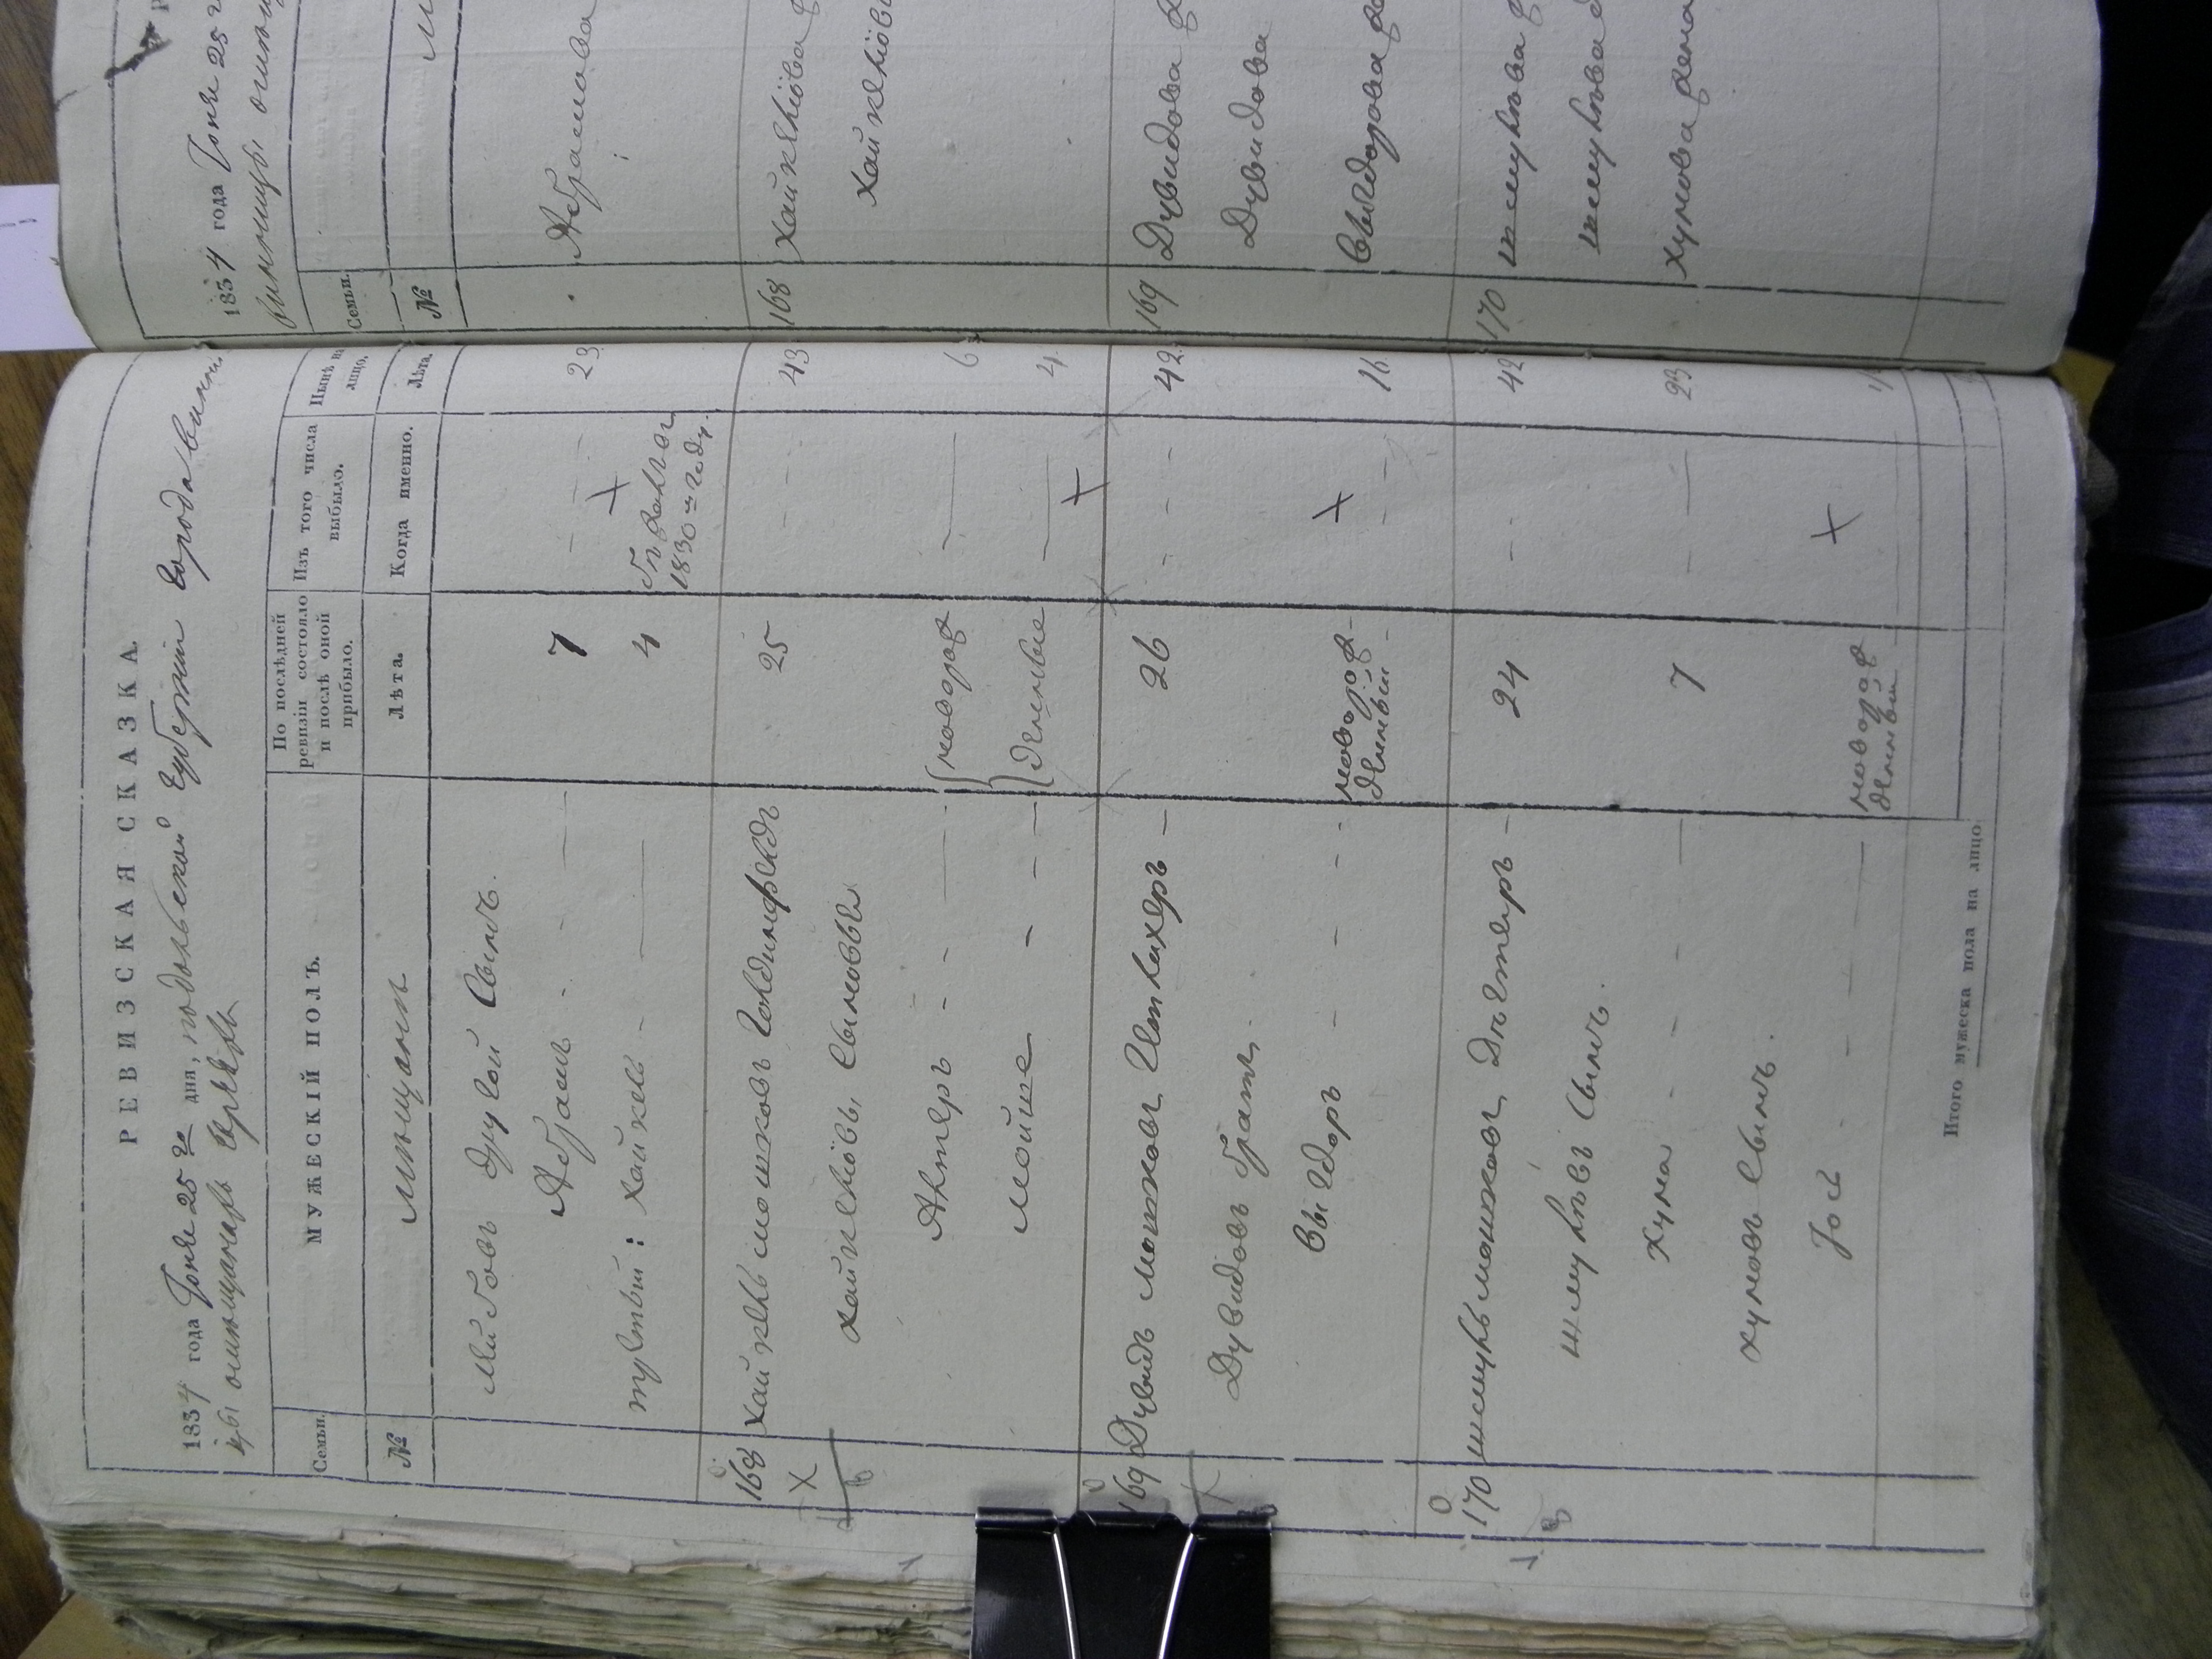 РЕВИЗСКАЯ СКАЗКА.
1834 года Іюня 25 го дня, подольской Губерніи города винни
цы о мещанахъ Евреяхъ
Семьи.
МУЖЕСКІЙ ПОЛЪ.
По послѣдней ревизіи состояло и послѣ оной прибыло.
Изъ того числа выбыло.
Нынѣ на лицо.
№
мещане
Лѣта.
Когда именно.
Лѣта.
другой Сынъ.
Абрамъ 7 23
третьй: хайкель 4 1830 го году
168 хайкель мошковъ Голдинфелдъ 25 43
хайкелювы Сыновья
Алтеръ новорож 6
мойше денные 4
169 Дувидъ мошковъ 26 42
Дувидовъ братъ.
Выгдоръ новорож денный 16
170 шмуль мошковъ 24 42
шмулевъ Сынъ.
хуна 7 23
хуновъ Сынъ.
Іось новорож денный
Итого мужеска пола на лицо
1834 года Іюня 25
винницы о мещан
Семьи.
№
Абрамова
168 хайкелюва
хайкелюв
169 Дувидова
Дувидова
Выгдорова
170 шмулева
шмулева
хунова жена